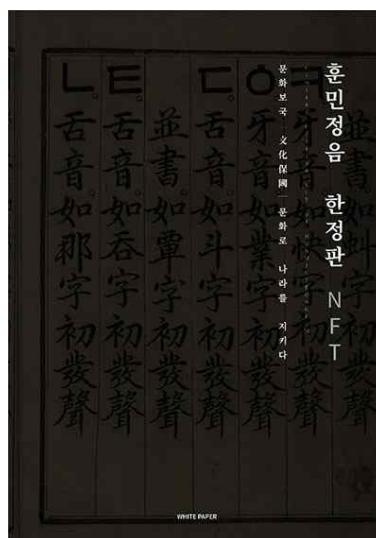 훈민정음 한정판 NFT
문화보국 | 文化保國 | 문화로 나라를 지키다
並書如虯字初發聲
ㅋ。牙音。如快字初發聲
ㆁ。牙音。如業字初發聲
ㄷ。舌音。如斗字初發聲
並書。如覃字初發聲
ㅌ。舌音。如呑字初發聲
ㄴ。舌音。如那字初發聲
WHITE PAPER